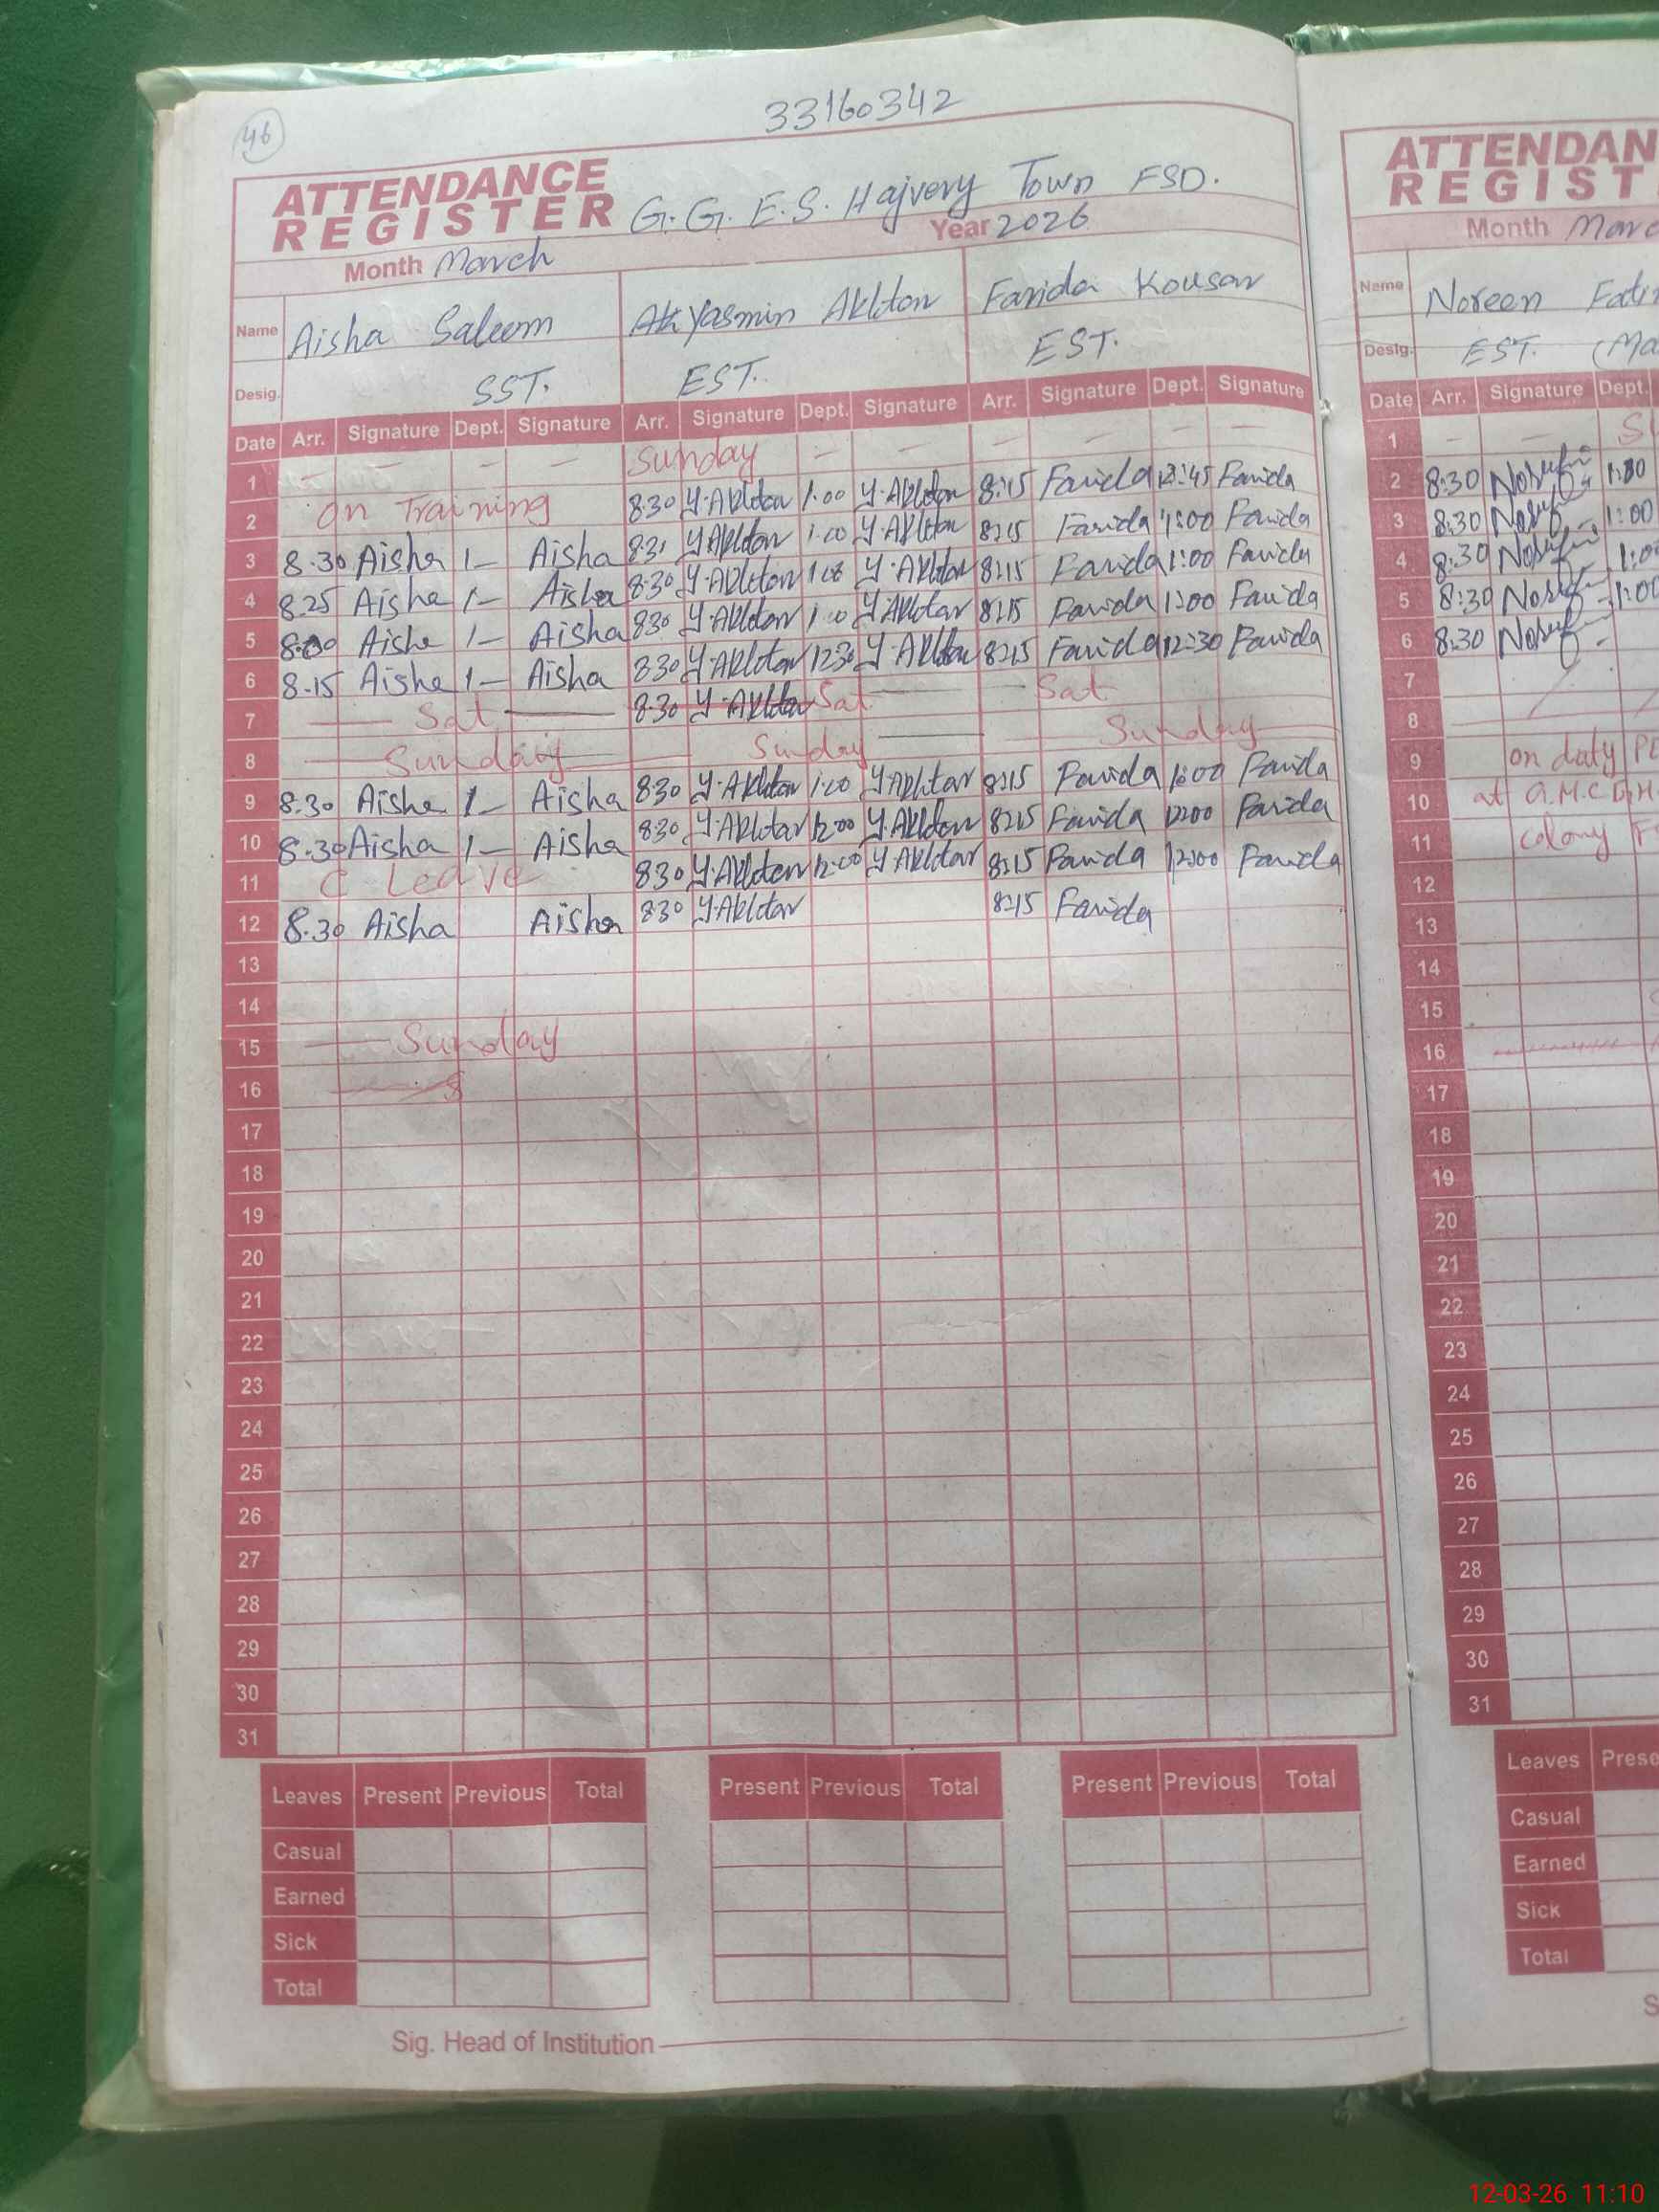 46
33160342
ATTENDANCE REGISTER G.G.E.S. Hajvery Town FSD.
Month March Year 2026
Name Aisha Saleem Yasmin Akhtar Farida Kousar
Desig. SST. EST. EST.
Date Arr. Signature Dept. Signature Arr. Signature Dept. Signature Arr. Signature Dept. Signature
1 - - - - Sunday - - - - - -
2 On Training 8:30 Y.Akhtar 1:00 Y.Akhtar 8:15 Farida 12:45 Farida
3 8.30 Aisha 1- Aisha 8:31 Y.Akhtar 1:00 Y.Akhtar 8:15 Farida 1:00 Farida
4 8.25 Aisha 1- Aisha 8:30 Y.Akhtar Y.Akhtar 8:15 Farida 1:00 Farida
5 Aisha 1- Aisha 8:30 Y.Akhtar 1:00 Y.Akhtar 8:15 Farida 1:00 Farida
6 8.15 Aisha 1- Aisha 8:30 Y.Akhtar 12:30 Y.Akhtar 8:15 Farida 12:30 Farida
7 Sat 8:30 Y.Akhtar Sat Sat
8 Sunday Sunday Sunday
9 8.30 Aisha 1- Aisha 8:30 Y.Akhtar 1:00 Y.Akhtar 8:15 Farida 1:00 Farida
10 8.30 Aisha 1- Aisha 8:30 Y.Akhtar 12:00 Y.Akhtar 8:15 Farida 12:00 Farida
11 C Leave 8:30 Y.Akhtar 12:00 Y.Akhtar 8:15 Farida 12:00 Farida
12 8.30 Aisha Aisha 8:30 Y.Akhtar 8:15 Farida
13
14
15 Sunday
16
17
18
19
20
21
22
23
24
25
26
27
28
29
30
31
Leaves Present Previous Total Present Previous Total Present Previous Total
Casual
Earned
Sick
Total
Sig. Head of Institution
ATTENDAN
REGIST
Month Marc
Name Noreen
Desig. EST.
Date Arr. Signature Dept.
1 - -
2 8:30
3 8:30 1:00
4 8:30
5 8:30 1:00
6 8:30
7
8
9 on duty
10 at
11 colony
12
13
14
15
16
17
18
19
20
21
22
23
24
25
26
27
28
29
30
31
Leaves Prese
Casual
Earned
Sick
Total
12-03-26 11:10